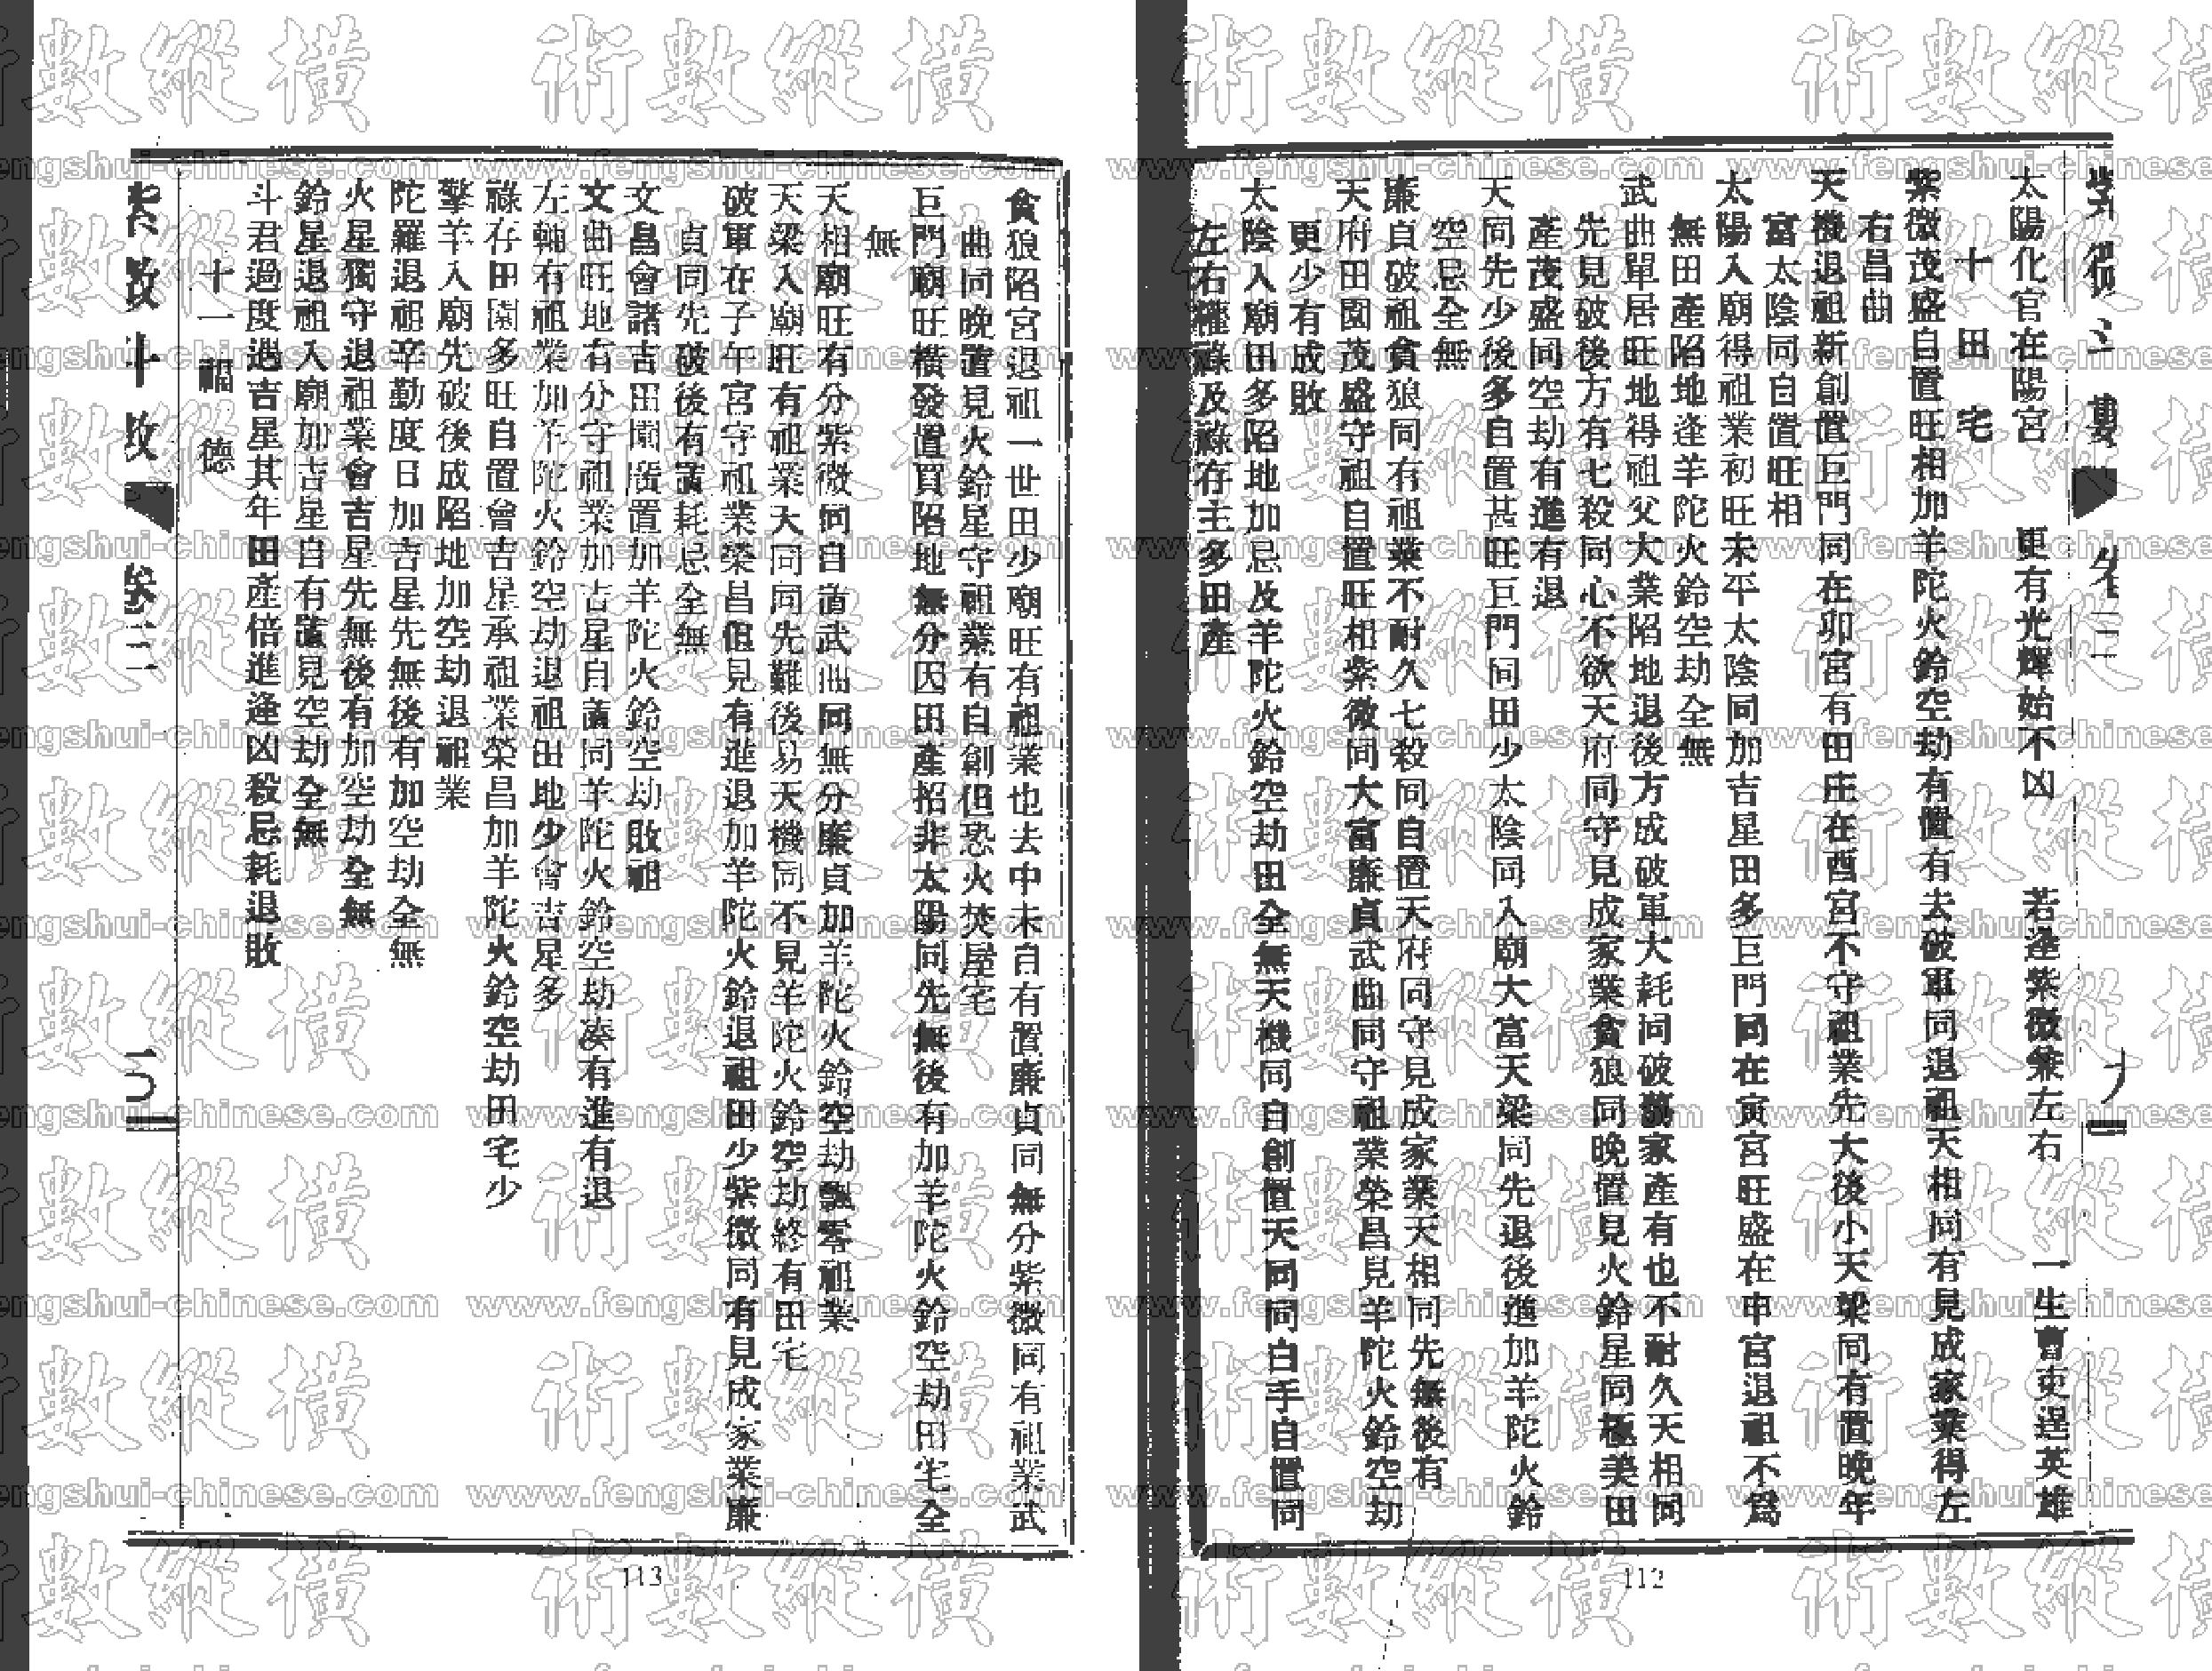 太陽化官在陽宮 更有光輝始不凶 若逢紫微兼左右 一生曹吏逞英雄
十 田 宅
紫微茂盛自置旺相加羊陀火鈴空劫有置有去破軍同退祖天相同有見成家業得左
右昌曲
天機退祖新創置巨門同在卯宮有田庄在酉宮不守祖業先大後小天梁同有置晚年
富太陰同自置旺相
太陽入廟得祖業初旺未平太陰同加吉星田多巨門同在寅宮旺盛在申宮退祖不為
無田產陷地逢羊陀火鈴空劫全無
武曲單居旺地得祖父大業陷地退後方成破軍大耗同破蕩家產有也不耐久天相同
先見破後方有七殺同心不欲天府同守見成家業貪狼同晚置見火鈴星同極美田
產茂盛同空劫有進有退
天同先少後多自置甚旺巨門同田少太陰同入廟大富天梁同先退後進加羊陀火鈴
空忌全無
廉貞破祖貪狼同有祖業不耐久七殺同自置天府同守見成家業天相同先無後有
天府田園茂盛守祖自置旺相紫微同大富廉貞武曲同守祖業榮昌見羊陀火鈴空劫
更少有成敗
太陰入廟田多陷地加忌及羊陀火鈴空劫田全無天機同自創置天同同白手自置同
左右權祿及祿存主多田產
112
貪狼陷宮退祖一世田少廟旺有祖業也去中末自有置廉貞同無分紫微同有祖業武
曲同晚置見火鈴星守祖業有自創但恐火焚屋宅
巨門廟旺橫發置買陷地無分因田產招非太陽同先無後有加羊陀火鈴空劫田宅全
無
天相廟旺有分紫微同自置武曲同無分廉貞加羊陀火鈴空劫飄零祖業
天梁入廟旺有祖業天同同先難後易天機同不見羊陀火鈴空劫終有田宅
破軍在子午宮守祖業榮昌但見有進退加羊陀火鈴退祖田少紫微同有見成家業廉
貞同先破後有置耗忌全無
文昌會諸吉田園廣置加羊陀火鈴空劫敗祖
文曲旺地有分守祖業加吉星自置同羊陀火鈴空劫湊有進有退
左輔有祖業加羊陀火鈴空劫退祖田地少會吉星多
祿存田園多旺自置會吉星承祖業榮昌加羊陀火鈴空劫田宅少
擎羊入廟先破後成陷地加空劫退祖業
陀羅退祖辛勤度日加吉星先無後有加空劫全無
火星獨守退祖業會吉星先無後有加空劫全無
鈴星退祖入廟加吉星自有置見空劫全無
斗君過度遇吉星其年田產倍進逢凶殺忌耗退敗
十一 福 德
113